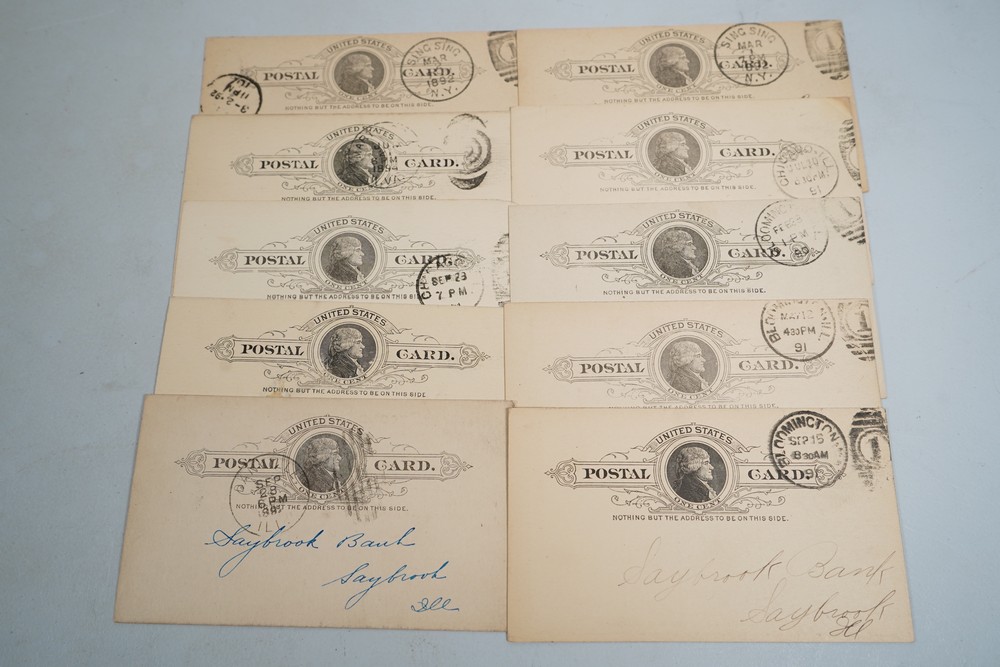 UNITED STATES
POSTAL CARD.
ONE CENT
NOTHING BUT THE ADDRESS TO BE ON THIS SIDE.
SING SING
MAR
1892
N.Y.
3-2-92
UNITED STATES
POSTAL CARD.
ONE CENT
NOTHING BUT THE ADDRESS TO BE ON THIS SIDE.
SING SING
MAR
N.Y.
1
UNITED STATES
POSTAL CARD.
ONE CENT
NOTHING BUT THE ADDRESS TO BE ON THIS SIDE.
1894
UNITED STATES
POSTAL CARD.
ONE CENT
NOTHING BUT THE ADDRESS TO BE ON THIS SIDE.
CHICAGO, ILL.
630PM
91
UNITED STATES
POSTAL CARD.
ONE CENT
NOTHING BUT THE ADDRESS TO BE ON THIS SIDE.
SEP 23
7 PM
UNITED STATES
POSTAL CARD.
ONE CENT
NOTHING BUT THE ADDRESS TO BE ON THIS SIDE.
BLOOMING
FEB
1 PM
90
UNITED STATES
POSTAL CARD.
ONE CENT
NOTHING BUT THE ADDRESS TO BE ON THIS SIDE
UNITED STATES
POSTAL CARD.
ONE CENT
NOTHING BUT THE ADDRESS TO BE ON THIS SIDE.
BLOOMINGTON, ILL.
MAY 12
430PM
91
1
UNITED STATES
POSTAL CARD.
ONE CENT
NOTHING BUT THE ADDRESS TO BE ON THIS SIDE.
SEP
6 PM
ILL
Saybrook Bank
Saybrook
Ill
UNITED STATES
POSTAL CARD.
ONE CENT
NOTHING BUT THE ADDRESS TO BE ON THIS SIDE.
BLOOMINGTON
SEP 15
8 30AM
91
1
Saybrook Bank
Saybrook
Ill